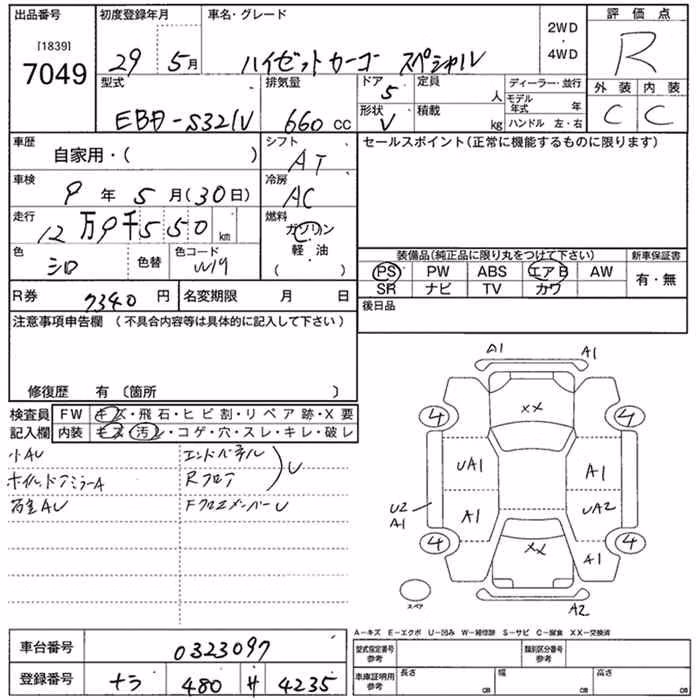 出品番号 初度登録年月 車名・グレード 評価点
[1839] 7049 29 5月 ハイゼットカーゴ スペシャル 2WD ・ 4WD R
型式 排気量 ドア 定員 ディーラー・並行 外装 内装
EBD-S321V 660 CC 5 人 モデル年式 年 C C
形状 V 積載 kg ハンドル 左・右
車歴 シフト セールスポイント(正常に機能するものに限ります)
自家用・( ) AT
車検 冷房
9年 5月(30日) AC
走行 燃料
12万9千550km ガソリン・軽油・( )
色 シロ 色替 色コード W19
装備品(純正品に限り丸をつけて下さい) 新車保証書
PS PW ABS エアB AW 有・無
SR ナビ TV カワ
R券 7340円 名変期限 月 日 後日品
注意事項申告欄 (不具合内容等は具体的に記入して下さい)
修復歴 有 〔箇所 〕
検査員 FW キズ・飛石・ヒビ割・リペア跡・X要
記入欄 内装 キズ・汚レ・コゲ・穴・スレ・キレ・破レ
小AU エンドパネル
Rフロア U
Fクロスメンバー U
A1 A1
XX
4 4
UA1 A1
U2 A1 A1 UA2
4 4
XX A1
スペア A2
A-キズ E-エクボ U-凹み W-補修跡 S-サビ C-腐食 XX-交換済
車台番号 0323097 型式指定番号 参考 類別区分番号 参考
登録番号 ナラ 480 サ 4235 車庫証明用 参考 長さ cm 幅 cm 高さ cm